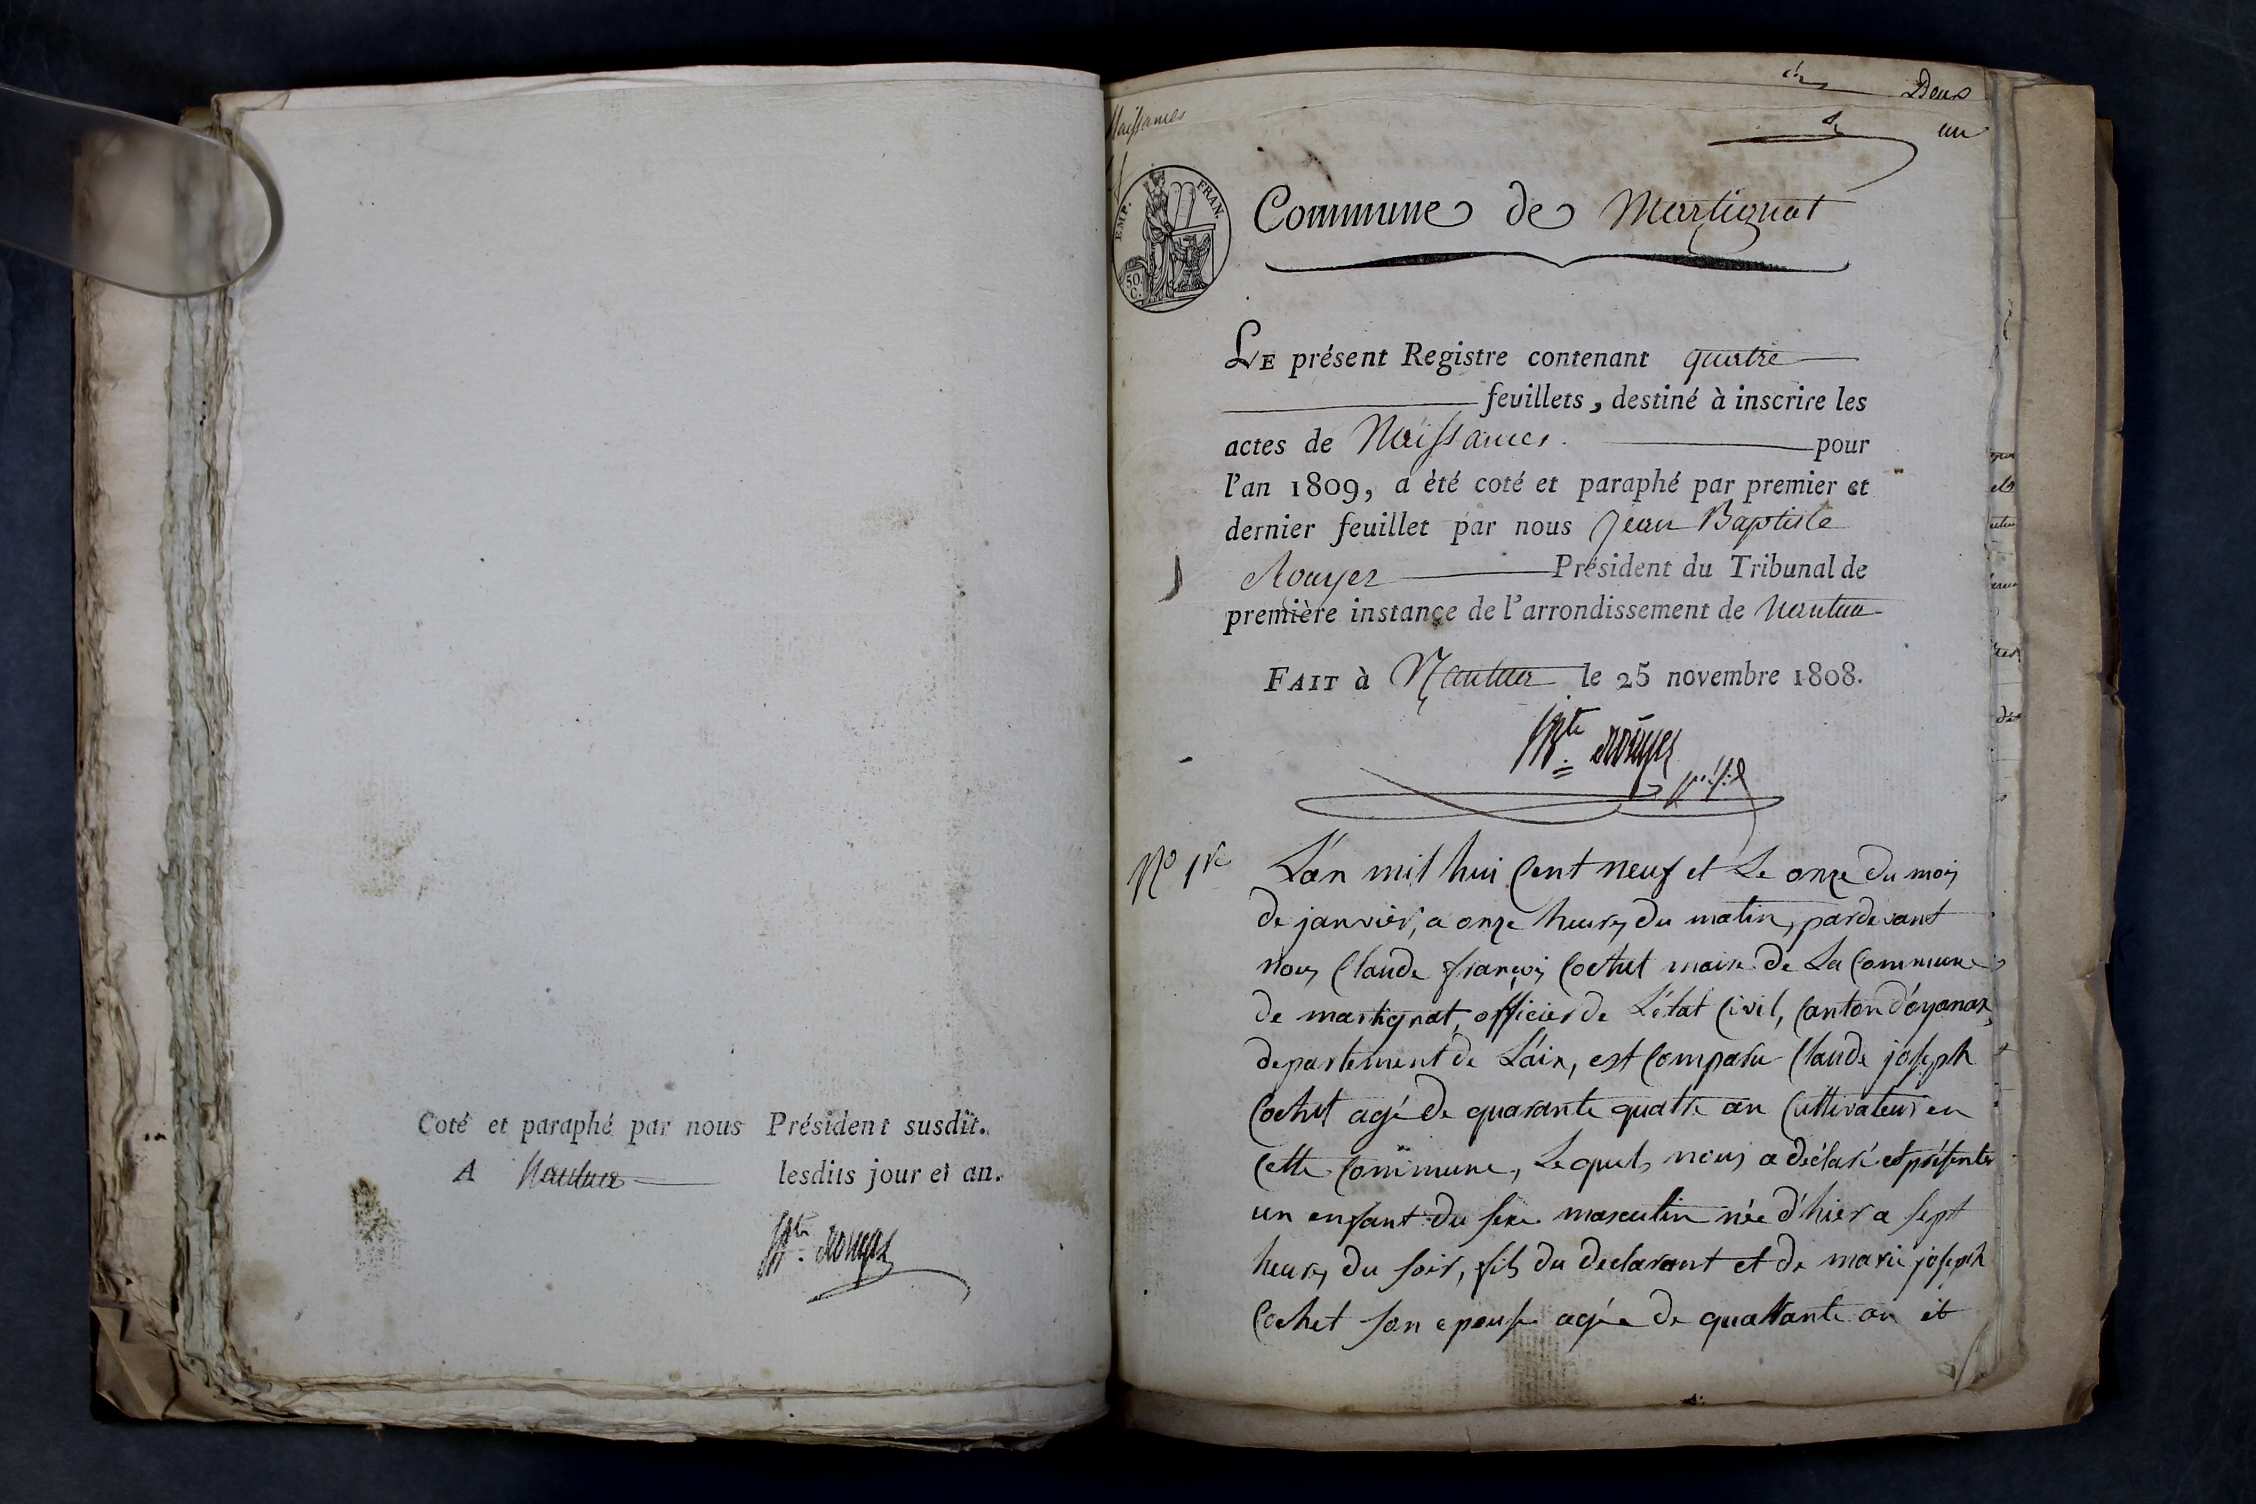 Coté et paraphé par nous Président susdit.
A Nantua lesdits jour et an.
Jn Bte Rouyer
Naissances
Deux
un
EMP. FRAN.
50 C.
Commune de Martignat
LE présent Registre contenant quatre
feuillets, destiné à inscrire les
actes de Naissances. pour
l'an 1809, a été coté et paraphé par premier et
dernier feuillet par nous Jean Baptiste
Rouyer Président du Tribunal de
première instance de l'arrondissement de Nantua
FAIT à Nantua le 25 novembre 1808.
Jn Bte Rouyer
présid
No 1re
L'an mil hui Cent neuf et Le onze du mois
de janvier, a onze heures du matin, pardevant
nous Claude françois Cochet maire de La Commune
de martignat, officier de L'état Civil, Canton d'oyonax,
departement de L'ain, est Comparu Claude joseph
Cochet agé de quarante quatre an Cultivateur en
Cette Commune, Lequel nous a déclaré et présenter
un enfant du sexe masculin née d'hier a sept
heures du soir, fils du declarant et de marie joseph
Cochet son epouse agée de quattante an et